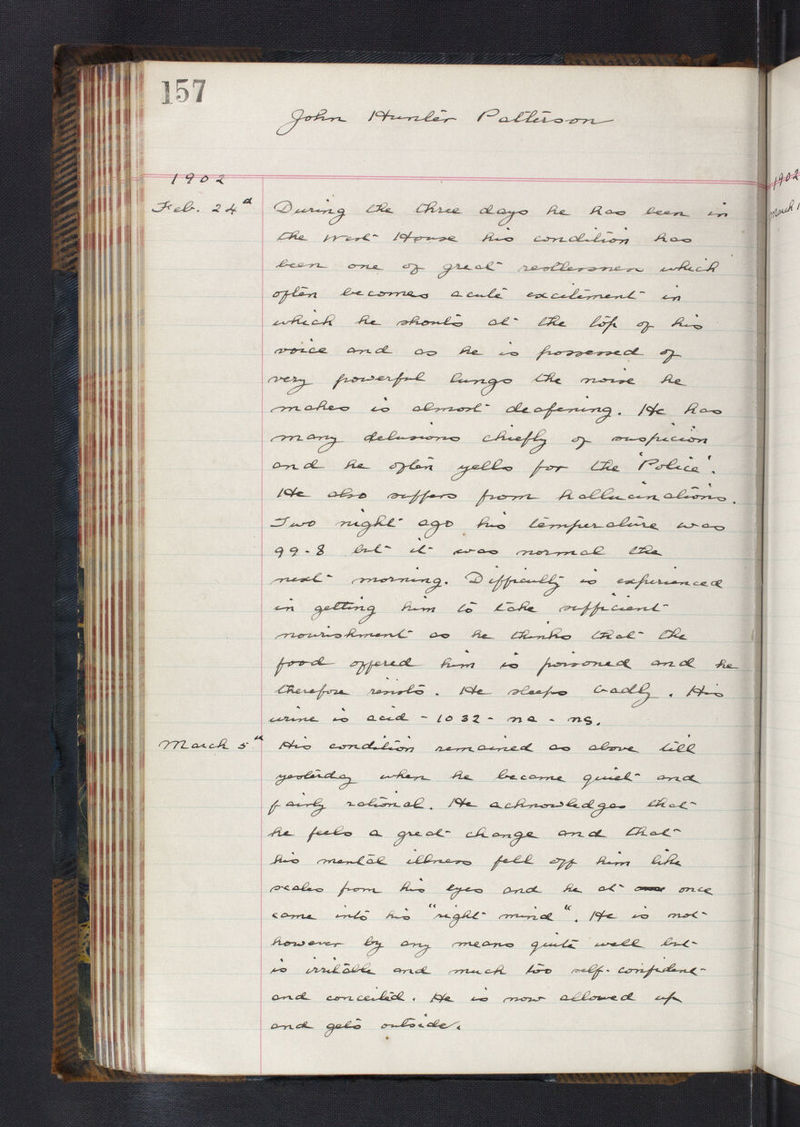 157
John Hunter Patterson
1902
Feb. 24th During the three days he has been in
the West House his condition has
been one of great restlessness which
often becomes acute excitement in
which he shouts at the top of his
voice and as he is possessed of
very powerful lungs the noise he
makes is almost deafening. He has
many delusions chiefly of suspicion
and he often yells for the 'Police'.
He also suffers from hallucinations.
Two night ago his temperature was
99.8 but it was normal the
next morning. Difficulty is experienced
in getting him to take sufficient
nourishment as he thinks that the
food offered him is poisoned and he
therefore resists. He sleeps badly. His
urine is acid - 1032 - na - ns.
March 5th His condition remained as above till
yesterday when he became quiet and
fairly rational. He acknowledges that
he feels a great change and that
his mental illness fell off him like
scales from his eyes and he at once
came into his "right mind". He is not
however by any means quite well but
is irritable and much too self-confident
and conceited. He is now allowed up
and gets outside.
1902
March 1